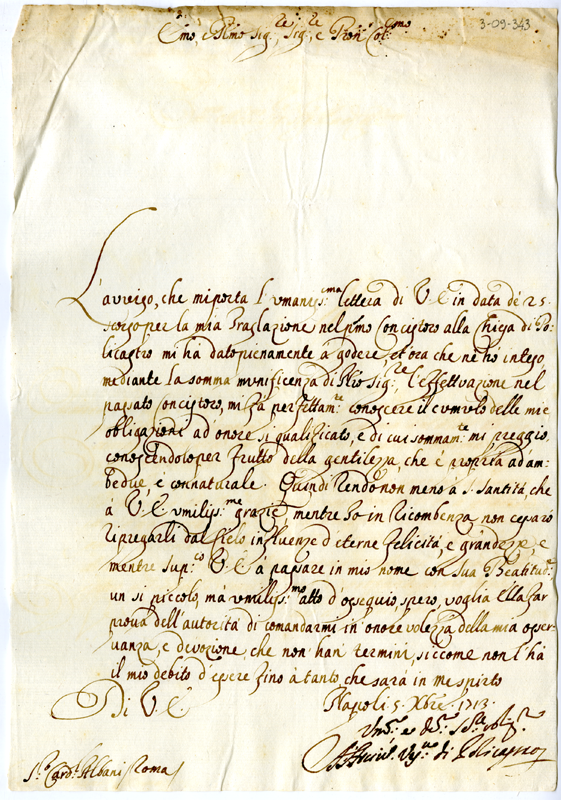 3-09-343
Em̃o, e Rm̃o Sig.re Sig.re, e Pron Col.mo
L'avviso, che mi porta l'umaniss.ma lettera di V.E. in data de 25.
scorso per la mia Traslazione nel p.mo Concistoro alla Chiesa di Po-
licastro mi ha dato pienamente a godere, et ora che ne hò inteso
mediante la somma munificenza di N'ro Sig.re l'effettuazione nel
passato Concistoro, mi fà perfettam.te conoscere il cumulo delle mie
obligazioni ad onore si qualificato, e di cui sommam.te mi preggio,
conoscendolo per frutto della gentilezza, che è propria ad am-
bedue, e connaturale. Quindi Rendo non meno à S. Santità, che
à V.E. umiliss.me grazie, mentre Io in Ricompenza non cessarò
ripregarli dal Cielo influenze d'eterne felicità, e grandezze, e
mentre sup.co V.E. à passare in mio nome con Sua Beatitud.e
un si piccolo, mà umiliss.mo atto d'ossequio, spero, voglia Ella far
prova dell'autorità di comandarmi in onorevolezza della mia osser-
vanza, e devozione, che non han termini, siccome non l'hà
il mio debito d'essere fino à tanto, che sarà in me spirto
Di V.E. Napoli 5. Xbre. 1713.
di Policastro
S.r Card.l Albani Roma